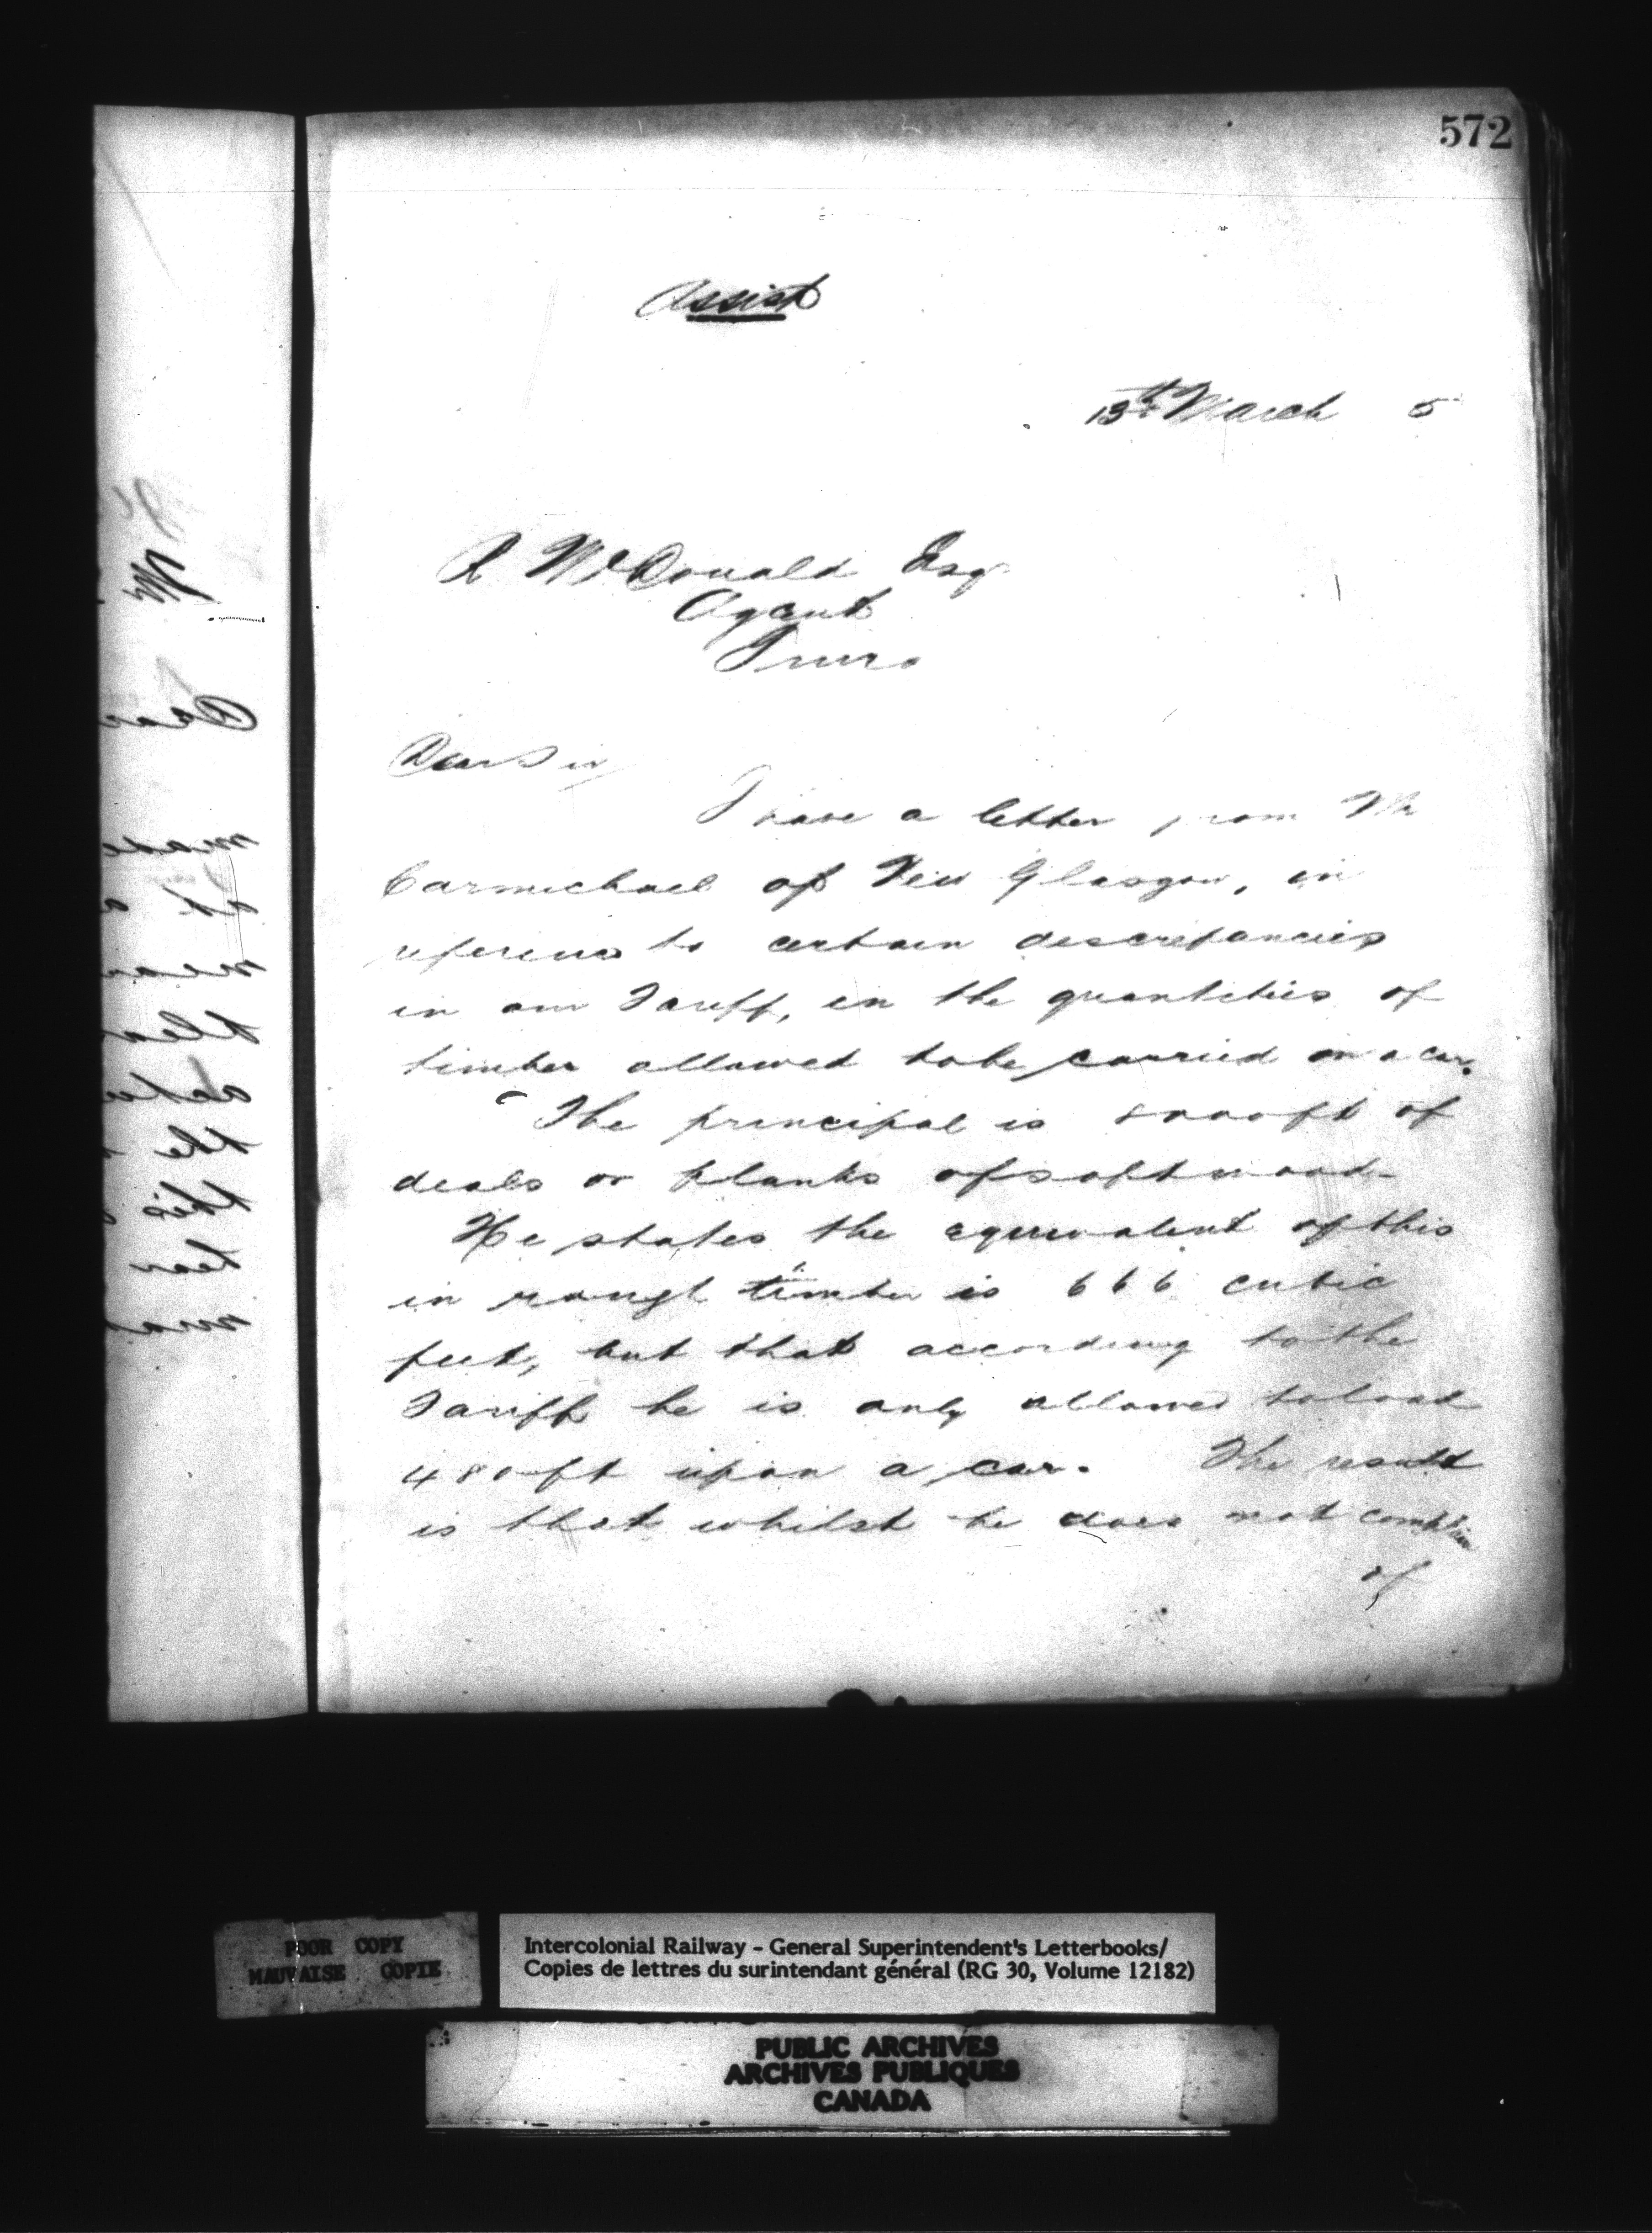 572
Assist
13th March 5
R McDonald Esq
Agent
Truro
Dear Sir
I have a letter from Mr
Carmichael of New Glasgow, in
reference to certain descrepancies
in our Tariff, in the quantities of
timber allowed to be carried on a car.
The principal is 8000 ft of
deals or planks of soft wood
He states the equivalent of this
in rough timber is 666 cubic
feet, but that according to the
Tariff he is only allowed to load
480 ft upon a car. The result
is that whilst he does not complain
of
POOR COPY
MAUVAISE COPIE
Intercolonial Railway - General Superintendent's Letterbooks/
Copies de lettres du surintendant général (RG 30, Volume 12182)
PUBLIC ARCHIVES
ARCHIVES PUBLIQUES
CANADA